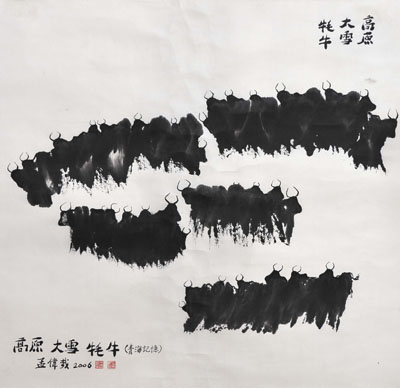 高原
大雪
牦牛
高原 大雪 牦牛 (青海记憶)
孟偉哉 2006